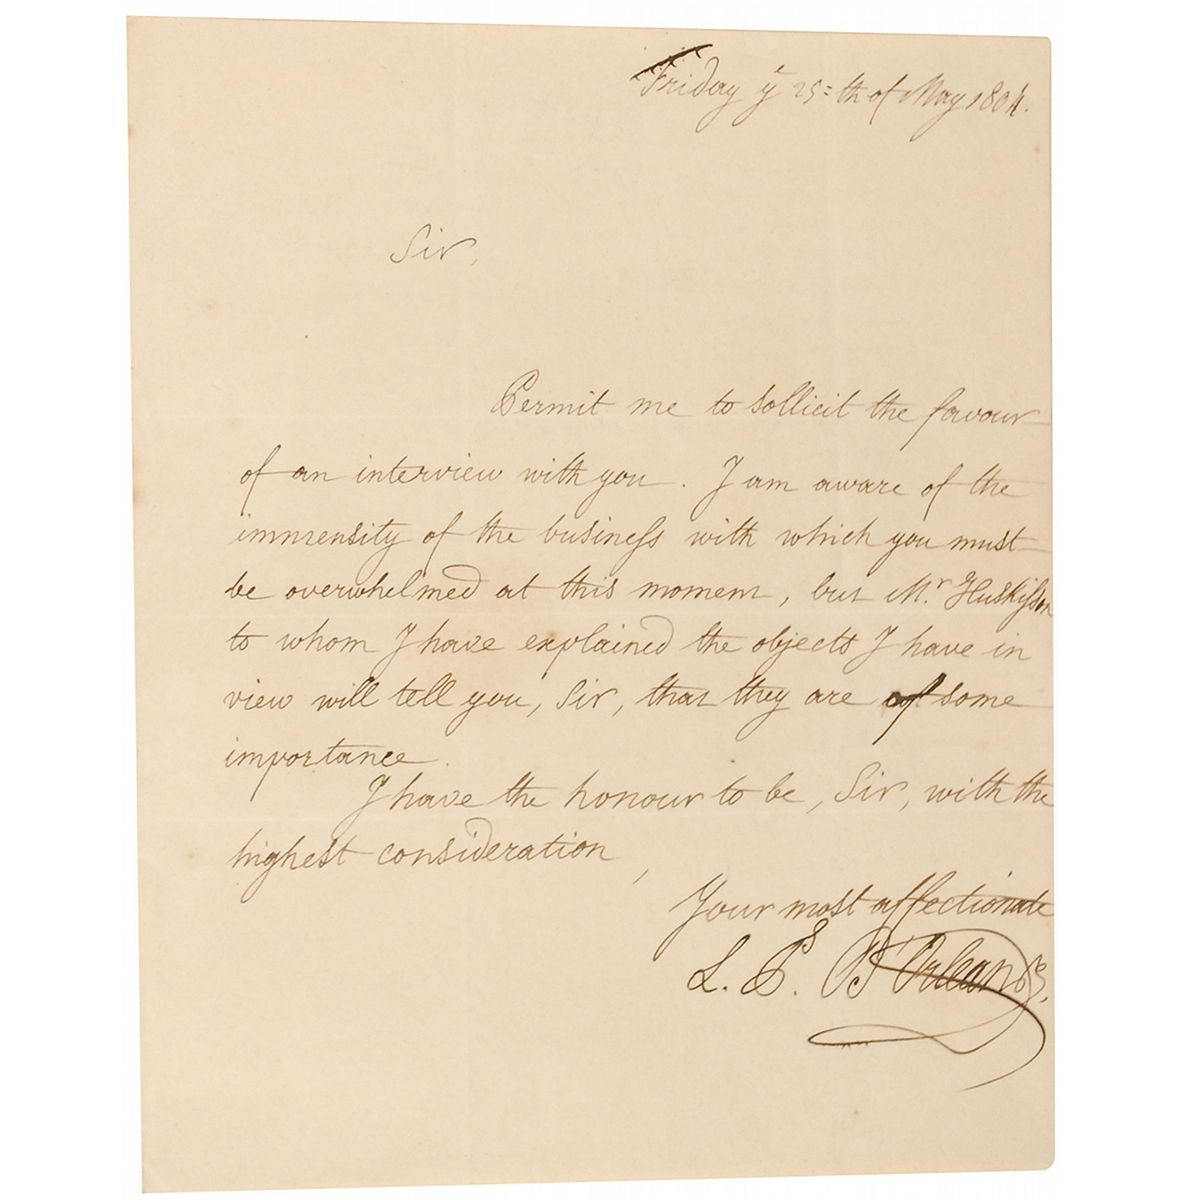 Friday yᵉ 25=th of May 1804.
Sir,
Permit me to sollicit the favour
of an interview with you. I am aware of the
immensity of the business with which you must
be overwhelmed at this moment, but M.ʳ Huskisson
to whom I have explained the objects I have in
view will tell you, Sir, that they are of some
importance.
I have the honour to be, Sir, with the
highest consideration,
Your most affectionate
L. P. D'Orleans.